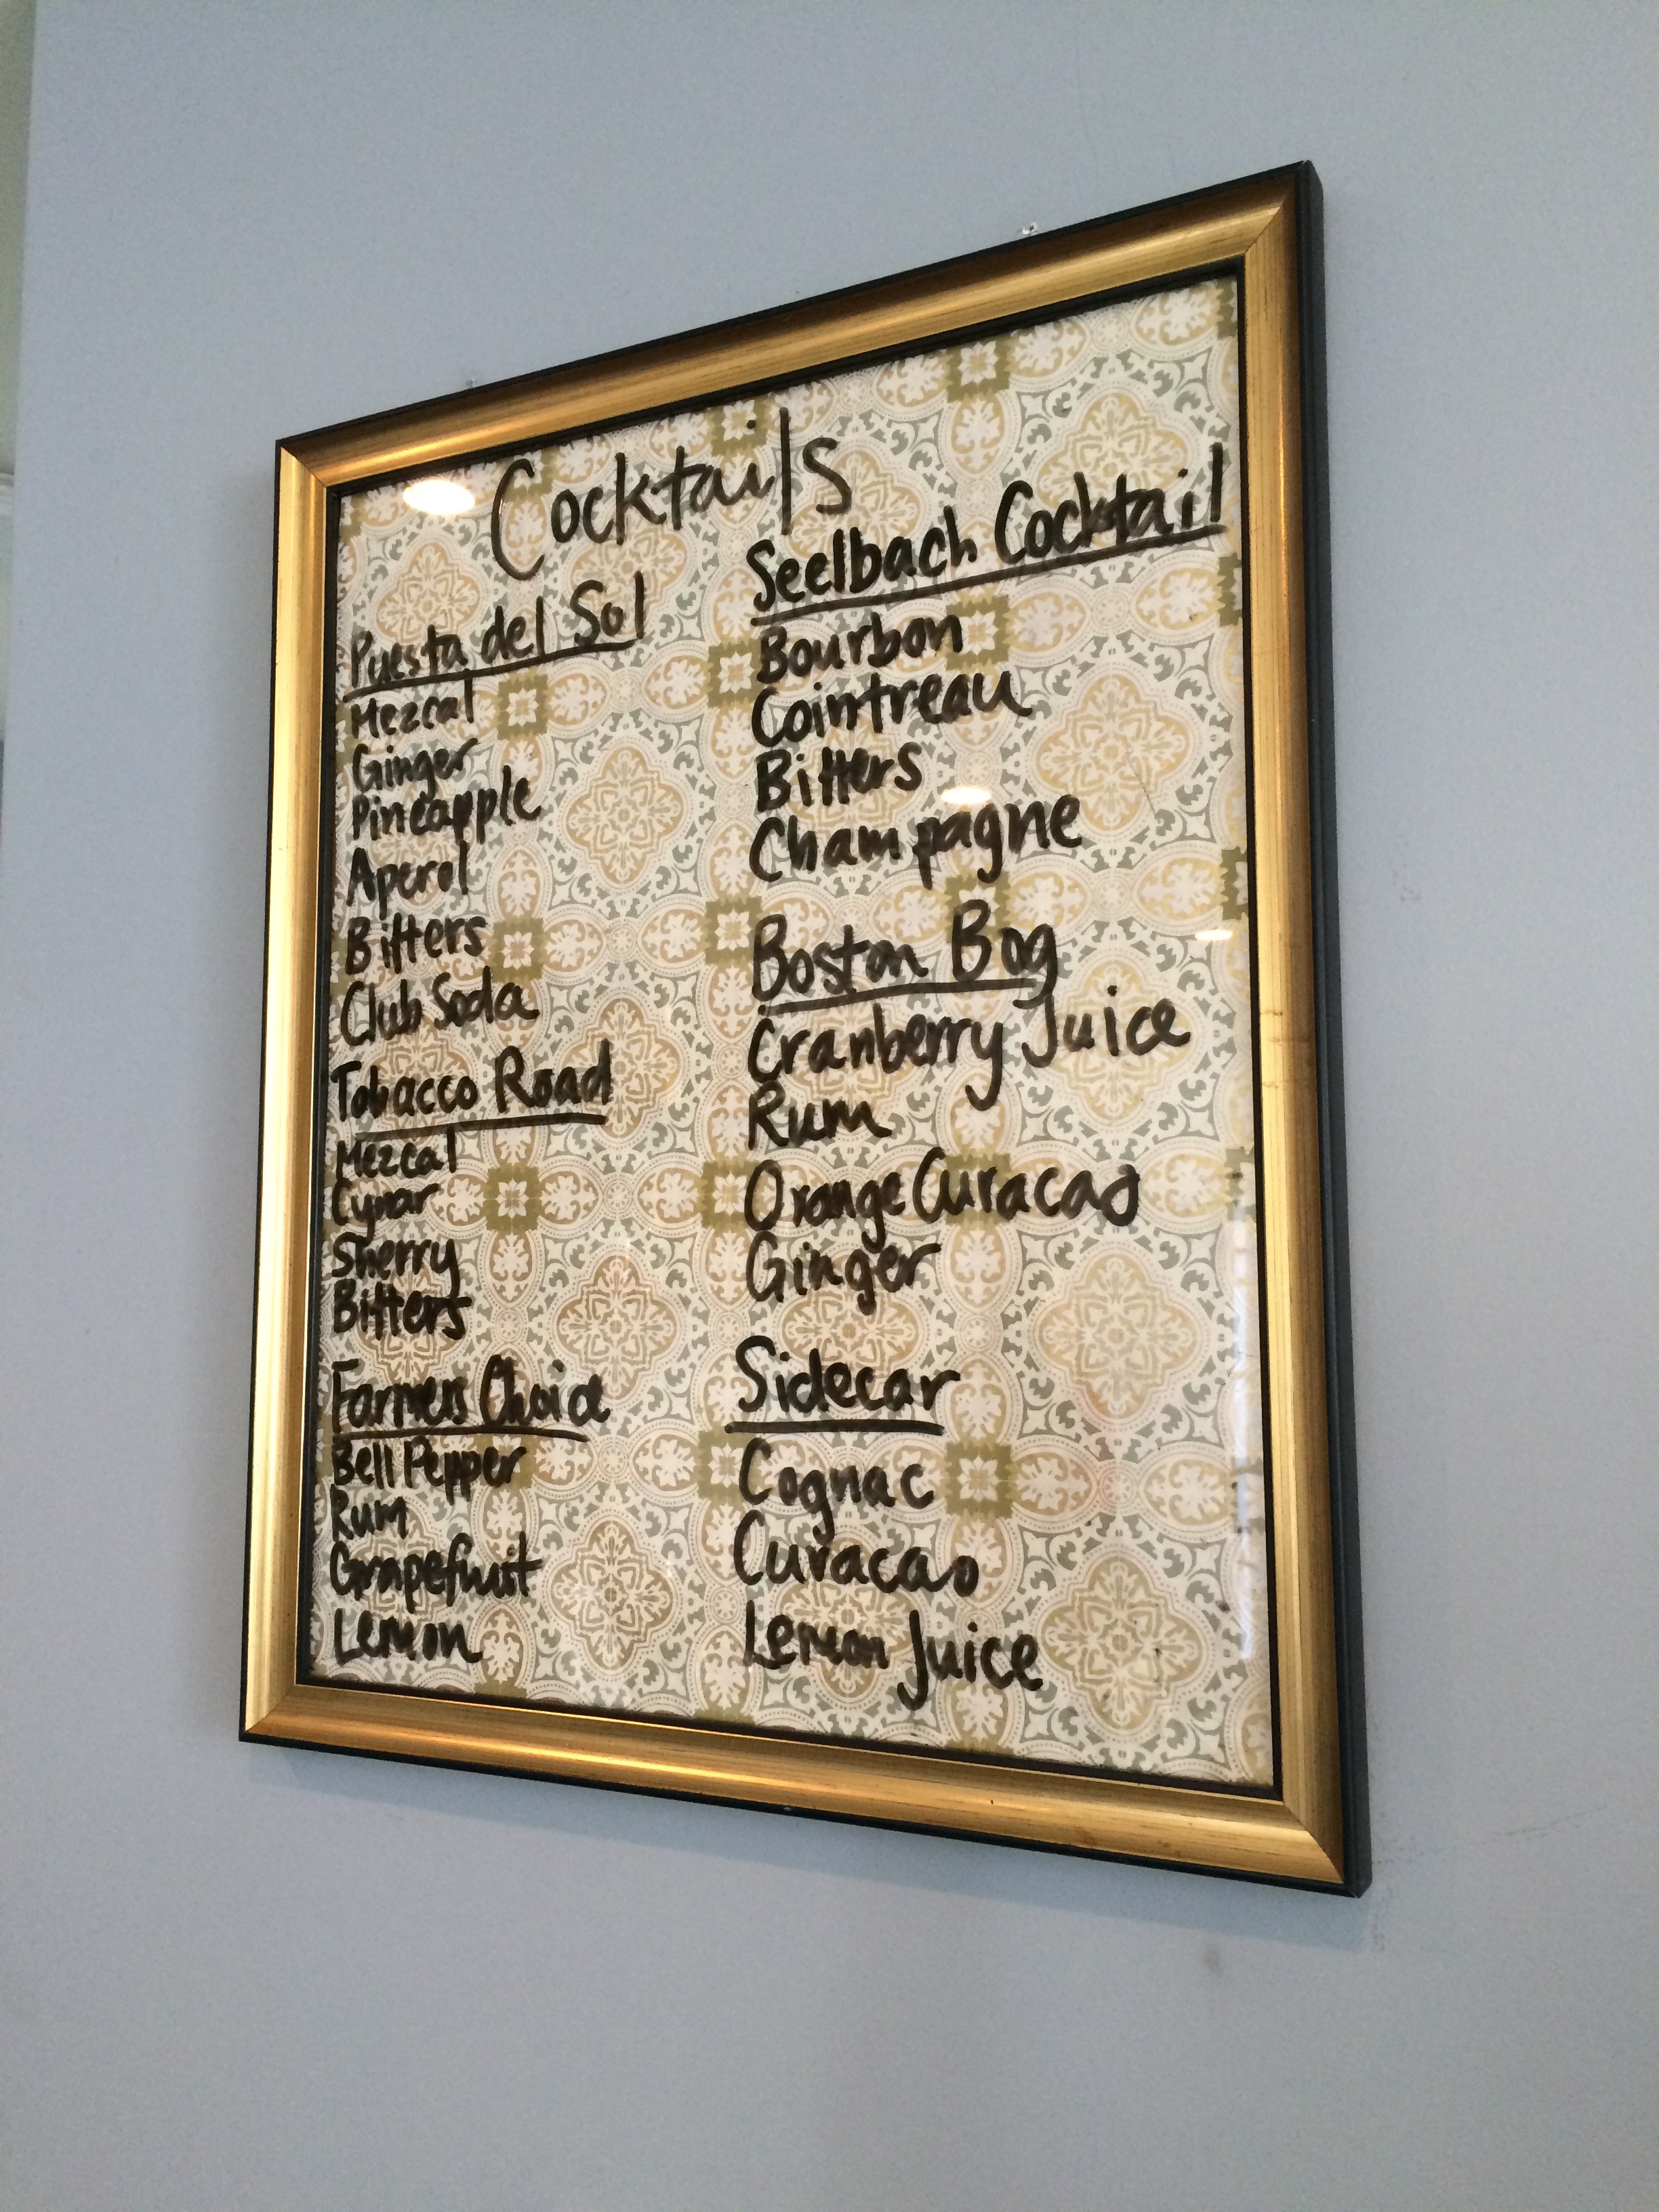 Cocktails
Puesta del Sol
Mezcal
Ginger
Pineapple
Aperol
Bitters
Club Soda
Tobacco Road
Mezcal
Cynar
Sherry
Bitters
Farmers Choice
Bell Pepper
Rum
Grapefruit
Lemon
Seelbach Cocktail
Bourbon
Cointreau
Bitters
Champagne
Boston Bog
Cranberry Juice
Rum
Orange Curacao
Ginger
Sidecar
Cognac
Curacao
Lemon Juice